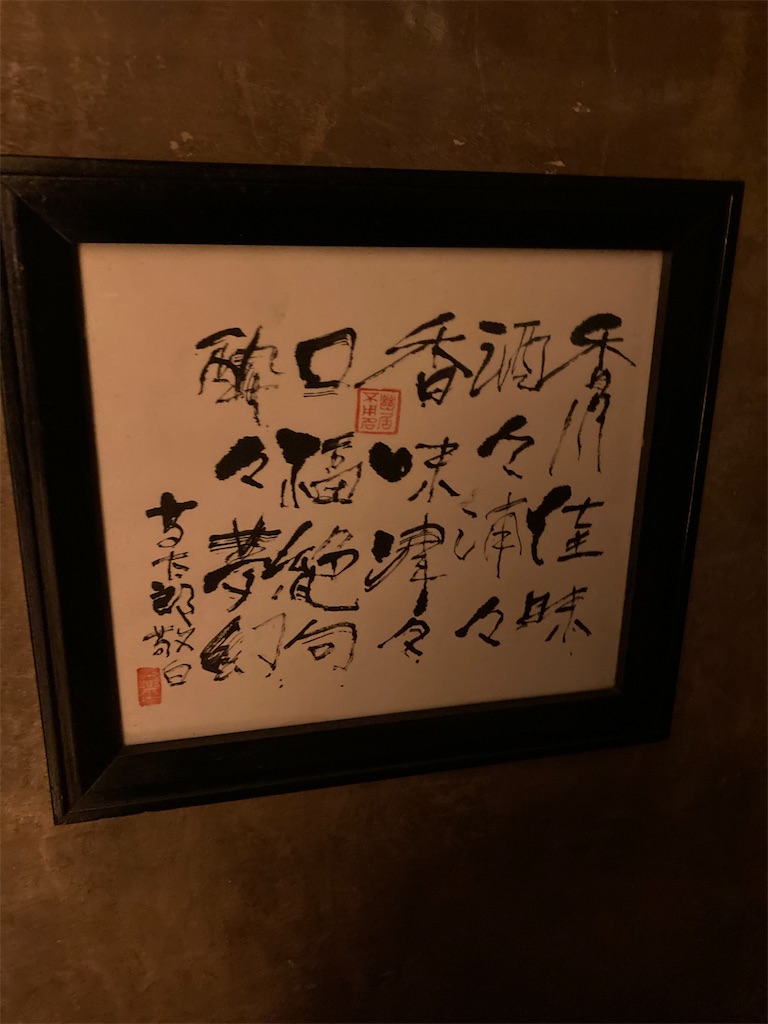 香川佳味
酒々浦々
香味津々
口福絶句
酔々夢幻
吉太郎敬白